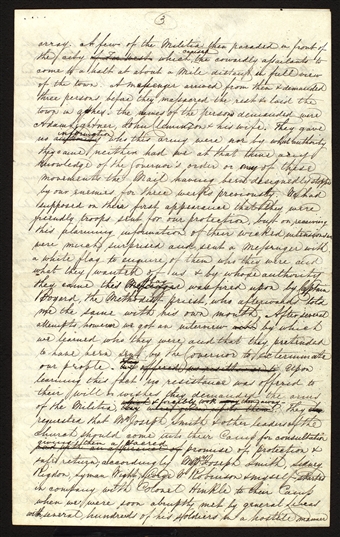 3
array. A few of the Militia then paraded in front of
the city which caused the cowardly assailants to
come to a halt at about a mile distant, in full view
of the town. A messenger arrived from them & demanded
three persons before they massacred the rest & laid the
town in ashes. the names of the persons demanded were
Adam Lightner, John Clemison & his wife. They gave
us information who this army were nor by what authority
they came, neither had we at that time any
knowledge of the Governor's order or any of these
movements the Mail having been designedly stopped
by our enemies for three weeks previously. We had
supposed on their first appearance that they were
friendly troops sent for our protection, but on receiving
this alarming information of their wicked intentions we
were much surprised and sent a messenger with
a white flag to enquire of them who they were and
what they wanted of us & by whose authority
they came this Messenger was fired upon by Captain
Bogard, the Methodist priest, who afterward told
me the same with his own mouth. After several
attempts however we got an interview by which
we learned who they were and that they pretended
to have been sent by the Governor to exterminate
our people. Upon
learning this fact no resistance was offered to
their will or wishes they demanded the arms
of the Militia & forcibly took many They
requested that Mr Joseph Smith & other leaders of the
Church should come into their Camp for consultation
giving them a promise of protection &
safe return, accordingly Mr Joseph Smith, Sidney
Rigdon, Lyman Wight, George W. Robinson & myself started
in company with Colonel Hinkle to their Camp
when we were soon abruptly met by general Lucas
with several hundreds of his Soldiers in a hostile manner